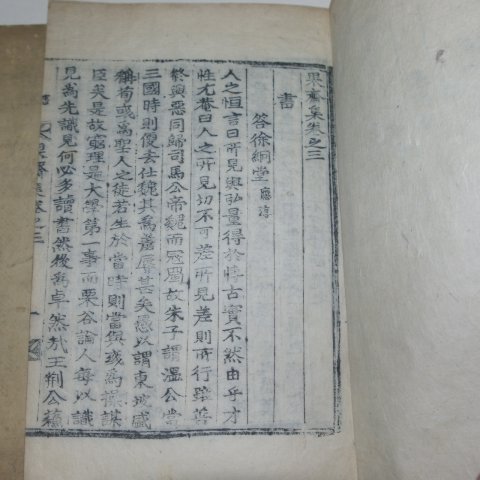 果齋集卷之三
書
答徐絅堂 應淳
人之恒言曰所見與弘量得於博古實不然由乎才
性尤菴曰人之所見切不可差所見差則所行雖善
終與惡同歸司馬公帝魏而寇蜀故朱子謂溫公當
三國時則便去仕魏其爲羞辱甚矣愚以謂東坡盛
稱荀彧爲聖人之徒若生於當時則當與彧爲操謀
臣矣是故窮理是大學第一事而栗谷論人每以識
見爲先識見何必多讀書然後爲卓然哉王荊公蘇
果齋集卷之三
一